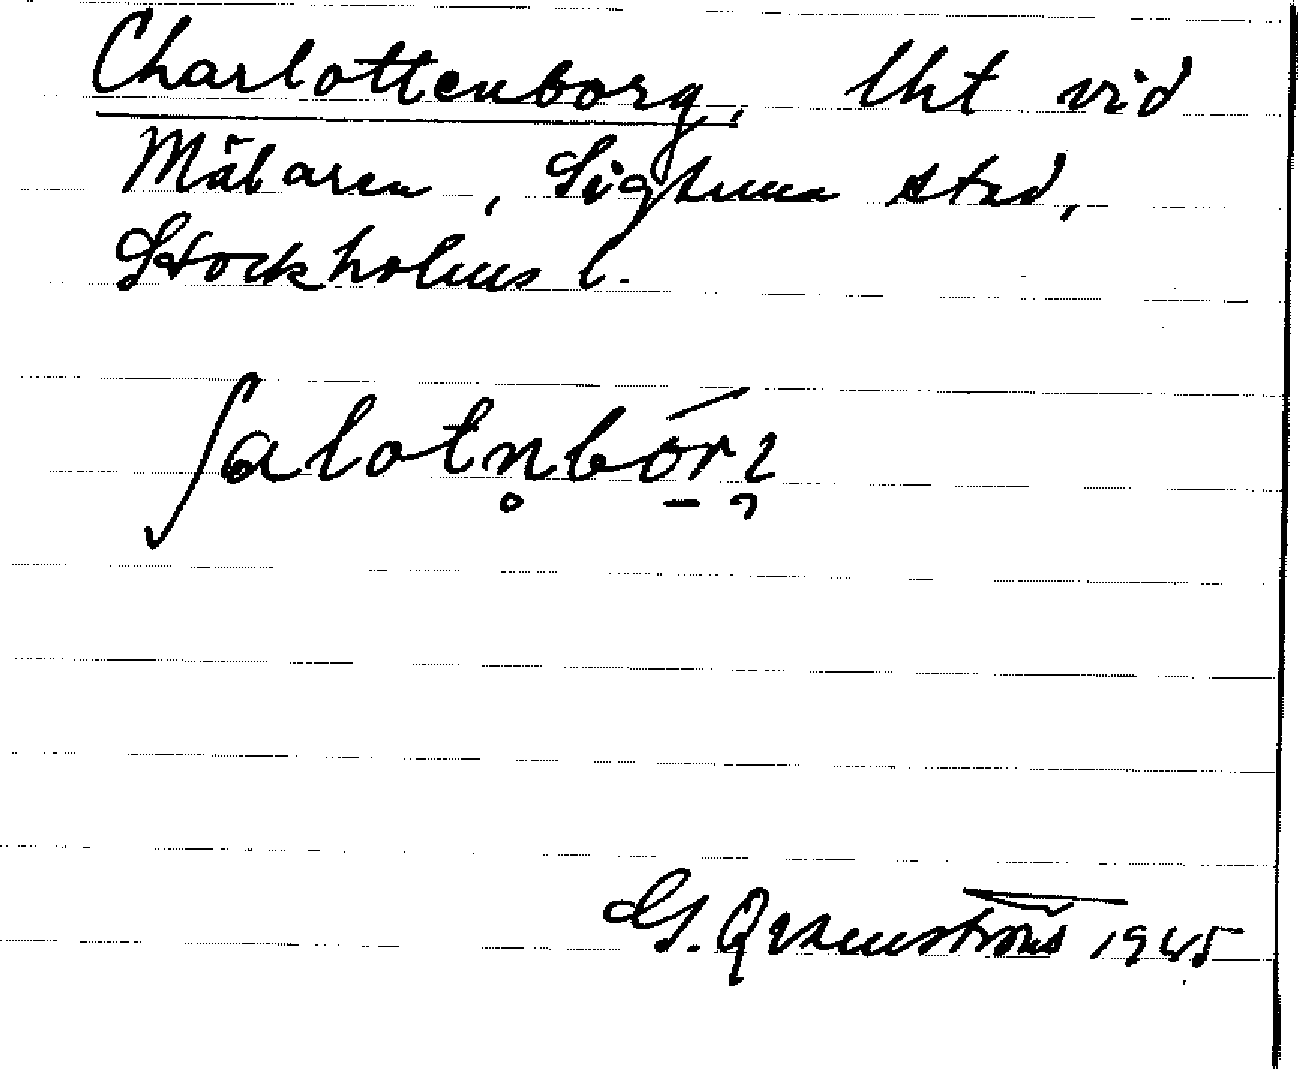 Charlottenborg, lht vid
Mälaren, Sigtuna stad,
Stockholms l.
ʃalotn̥bór̠ꞔ
G. Qvarnström 1945